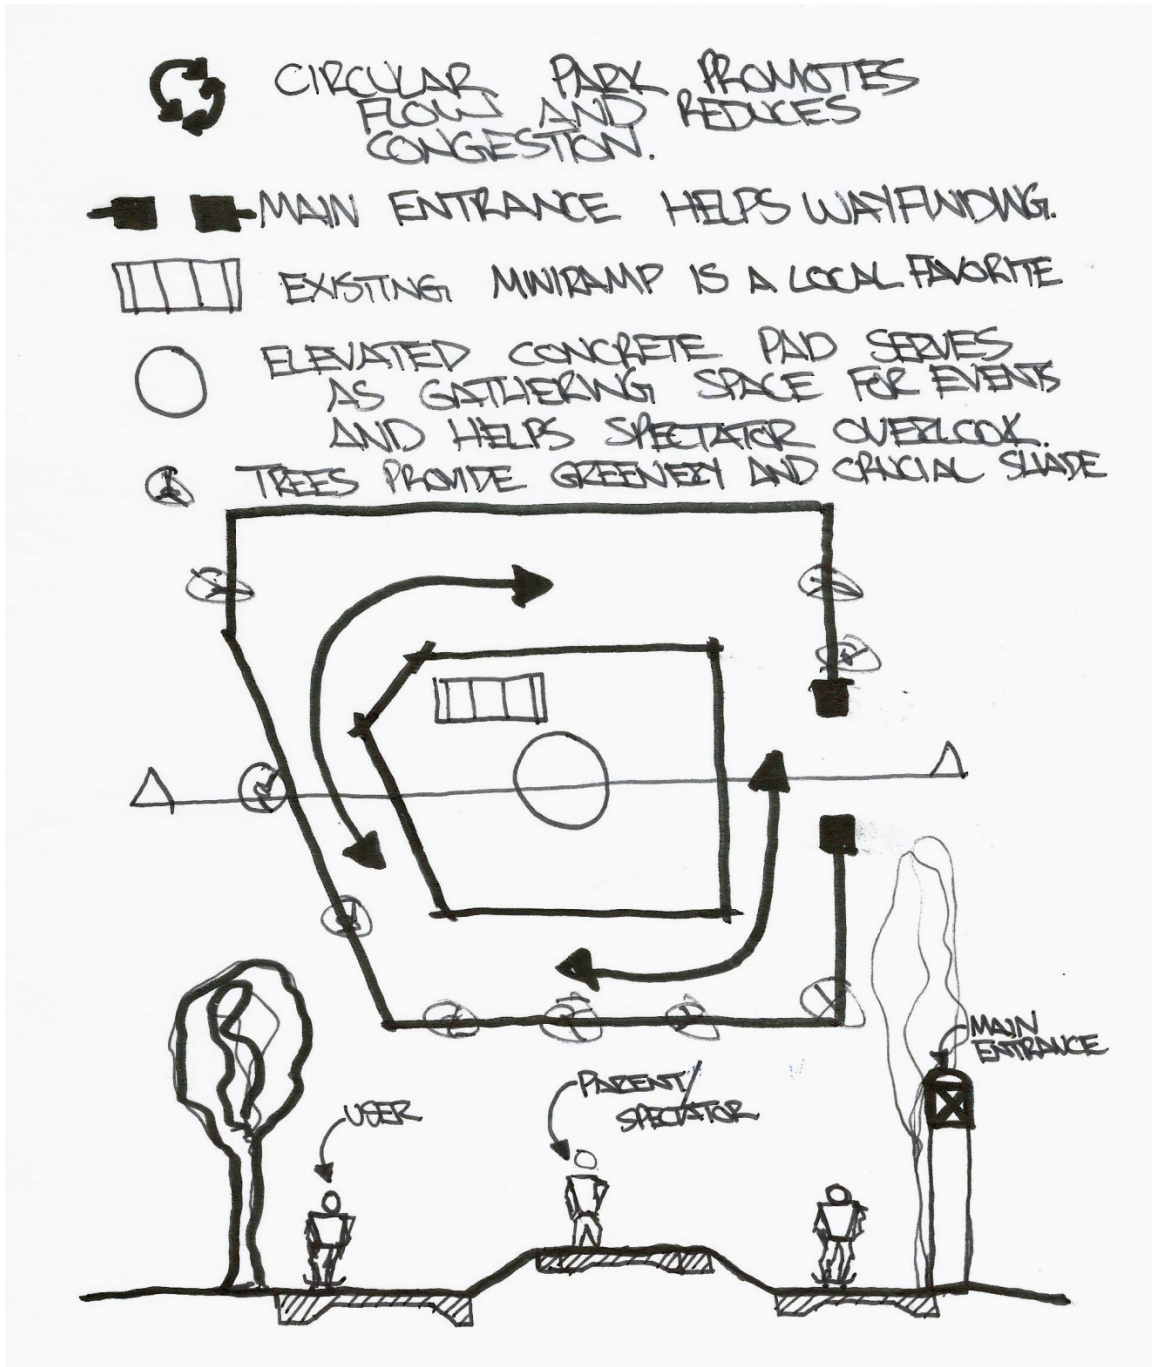 CIRCULAR PARK PROMOTES
FLOW AND REDUCES
CONGESTION.
MAIN ENTRANCE HELPS WAYFINDING.
EXISTING MINIRAMP IS A LOCAL FAVORITE
ELEVATED CONCRETE PAD SERVES
AS GATHERING SPACE FOR EVENTS
AND HELPS SPECTATOR OVERLOOK.
TREES PROVIDE GREENERY AND CRUCIAL SHADE
MAIN
ENTRANCE
PARENT/
SPECTATOR
USER